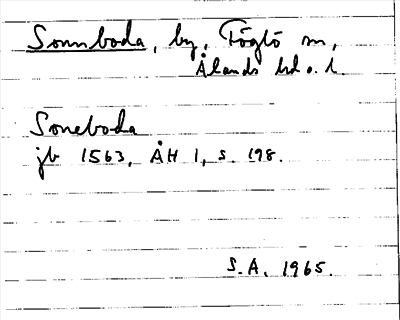 Sonnboda, by, Föglö sn,
Ålands hd o. l.
Soneboda
jb 1563, ÅH 1, s. 198.
S.A. 1965.